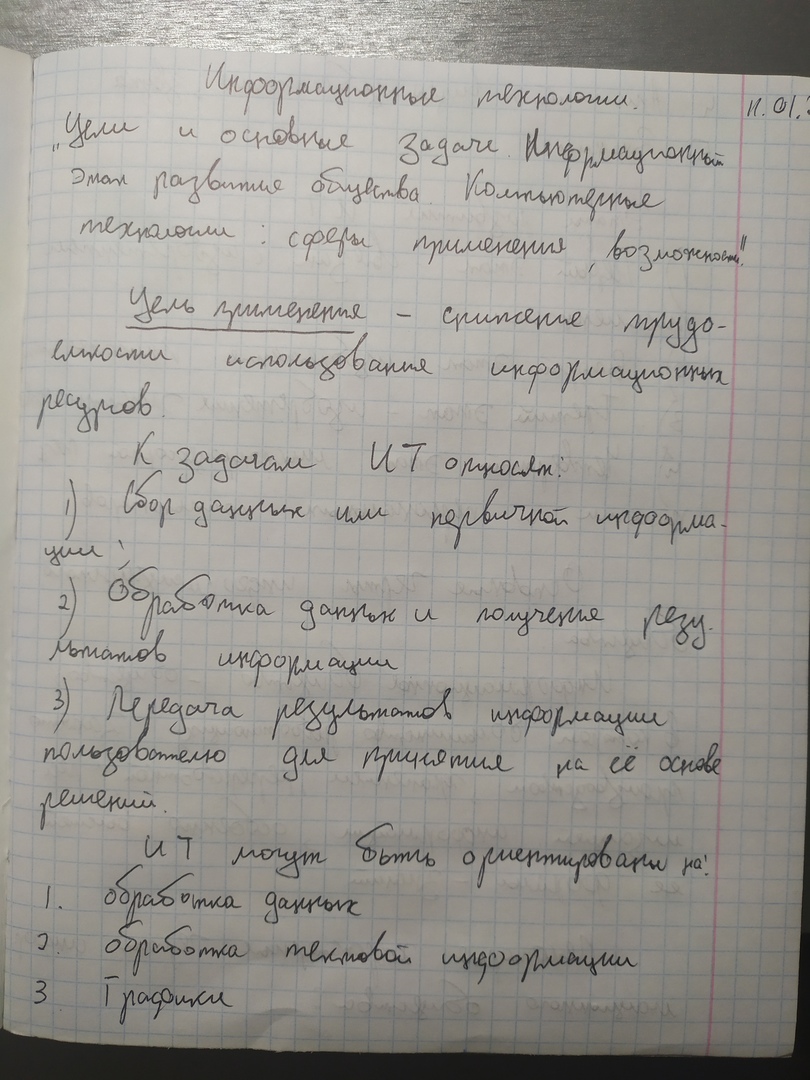 Информационные технологии.
п. 01.
„Цели и основные задачи. Информационный
этап развития общества. Компьютерные
технологии : сферы применения, возможности"
Цель применения – снижение трудо-
емкости использования информационных
ресурсов.
К задачам ИТ относят:
1) Сбор данных или первичной информа-
ции ;
2) Обработка данных и получение резу.
льтатов информации
3) Передача результатов информации
пользователю для принятия на её основе
решений.
ИТ могут быть ориентированы на:
1. обработка данных
2. обработка тектовой информации
3 Графики